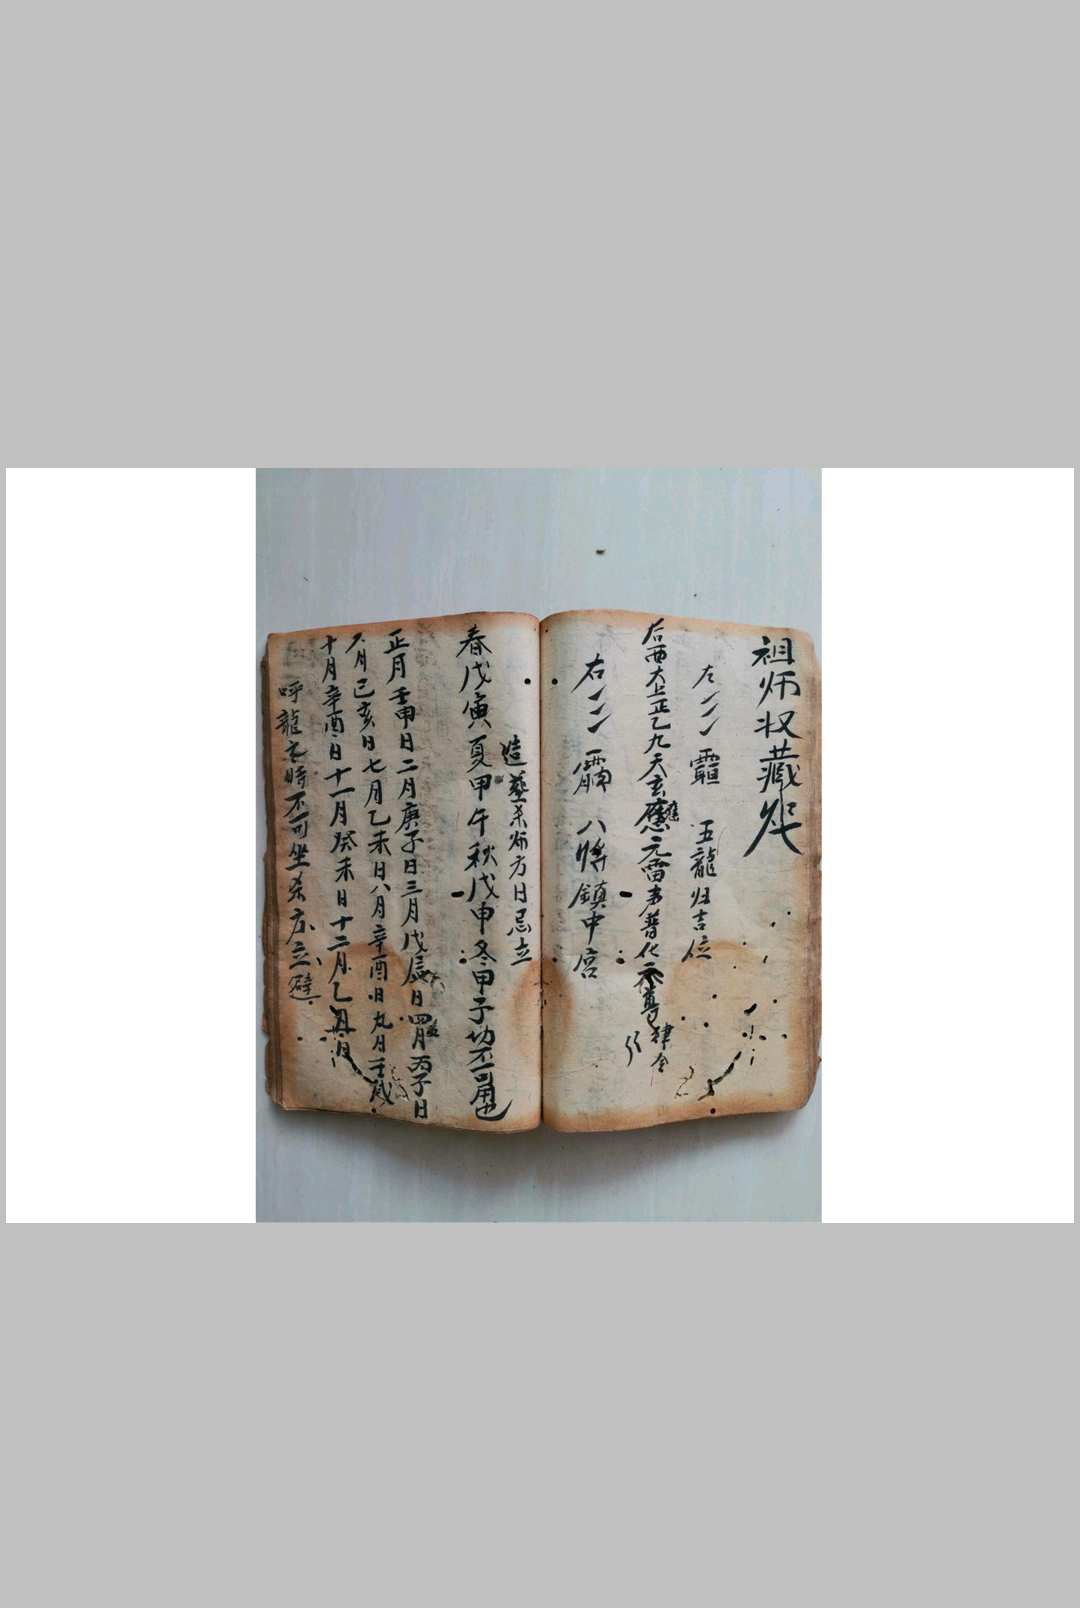 祖师收藏
左 五龍归吉位
后西太上正乙九天玄應元雷声普化天尊律令
右 八將鎮中宮
造葬杀师方日忌立
春戊寅夏甲午秋戊申冬甲子切不可用也
正月壬申日二月庚子日三月戊辰日四月丙子日
六月己亥日七月乙未日八月辛酉日九月壬戌
十月辛酉日十一月癸未日十二月乙日
呼龍之時不可坐杀方立避